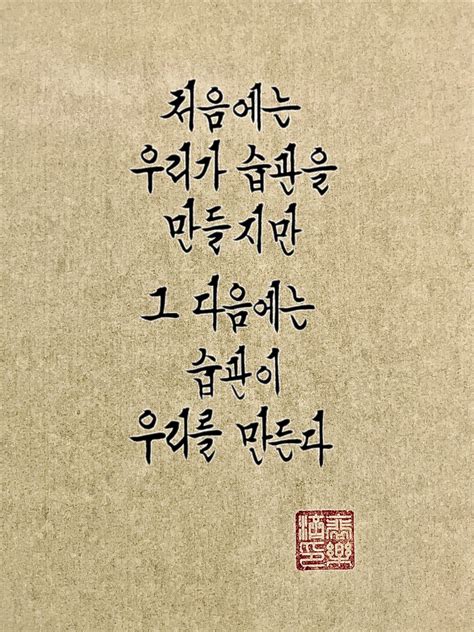 처음에는
우리가 습관을
만들지만
그 다음에는
습관이
우리를 만든다